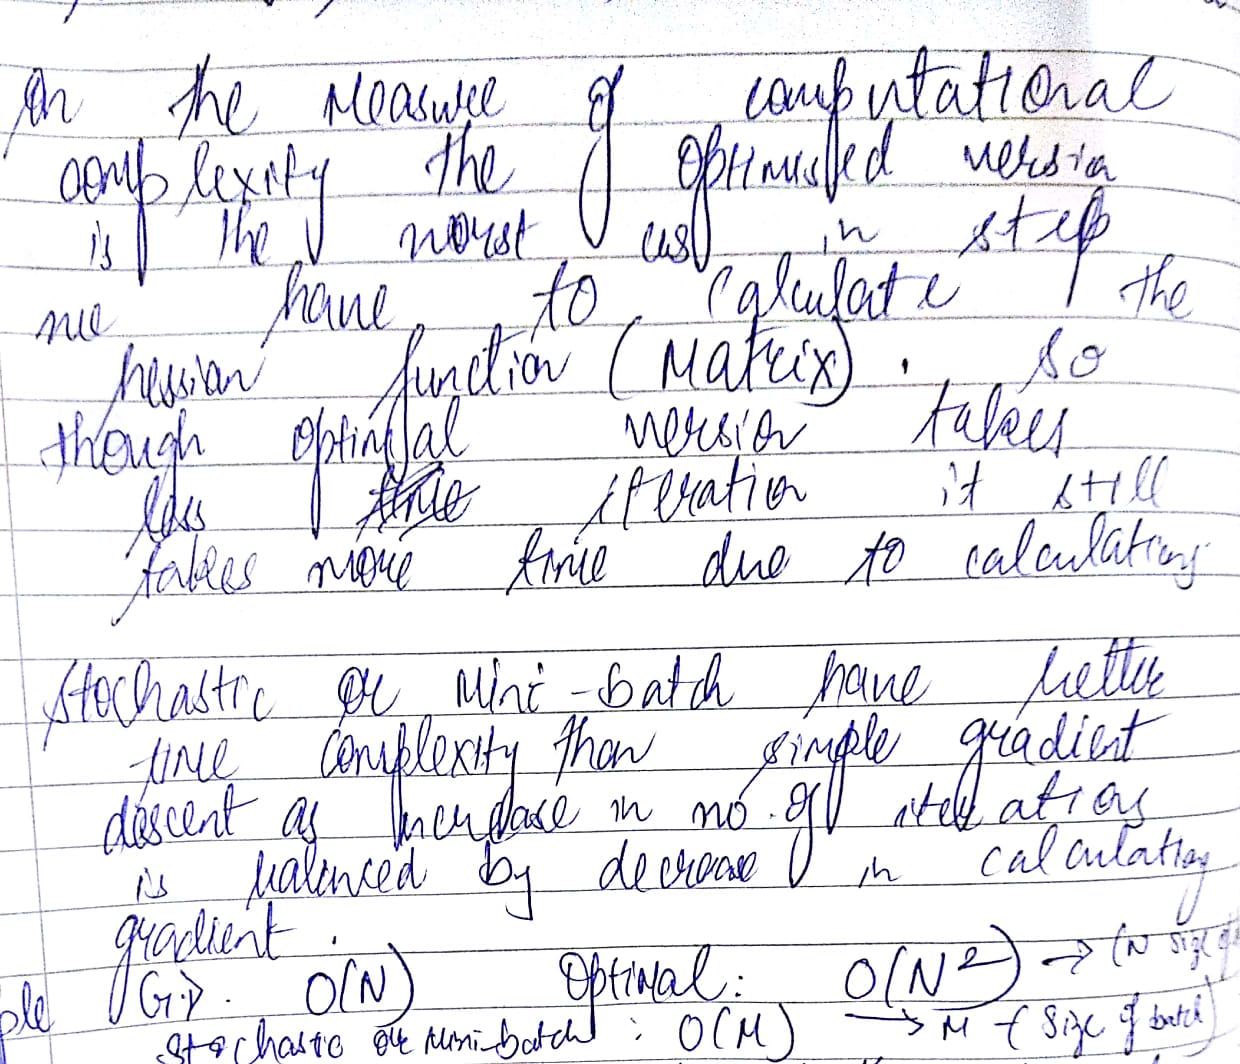 In the Measure of computational
complexity the optimised version
is the worst as in step
we have to calculate the
hessian function (Matrix). So
though optimal version takes
less iteration it still
takes more time due to calculations
Stochastic or Mini-batch have better
time complexity than simple gradient
descent as increase in no. of iterations
is balanced by decrease in calculating
gradient.
ple G.D. O(N) Optimal: O(N²) → (N size of
Stochastic or Mini-batch : O(M) → M - (Size of batch)